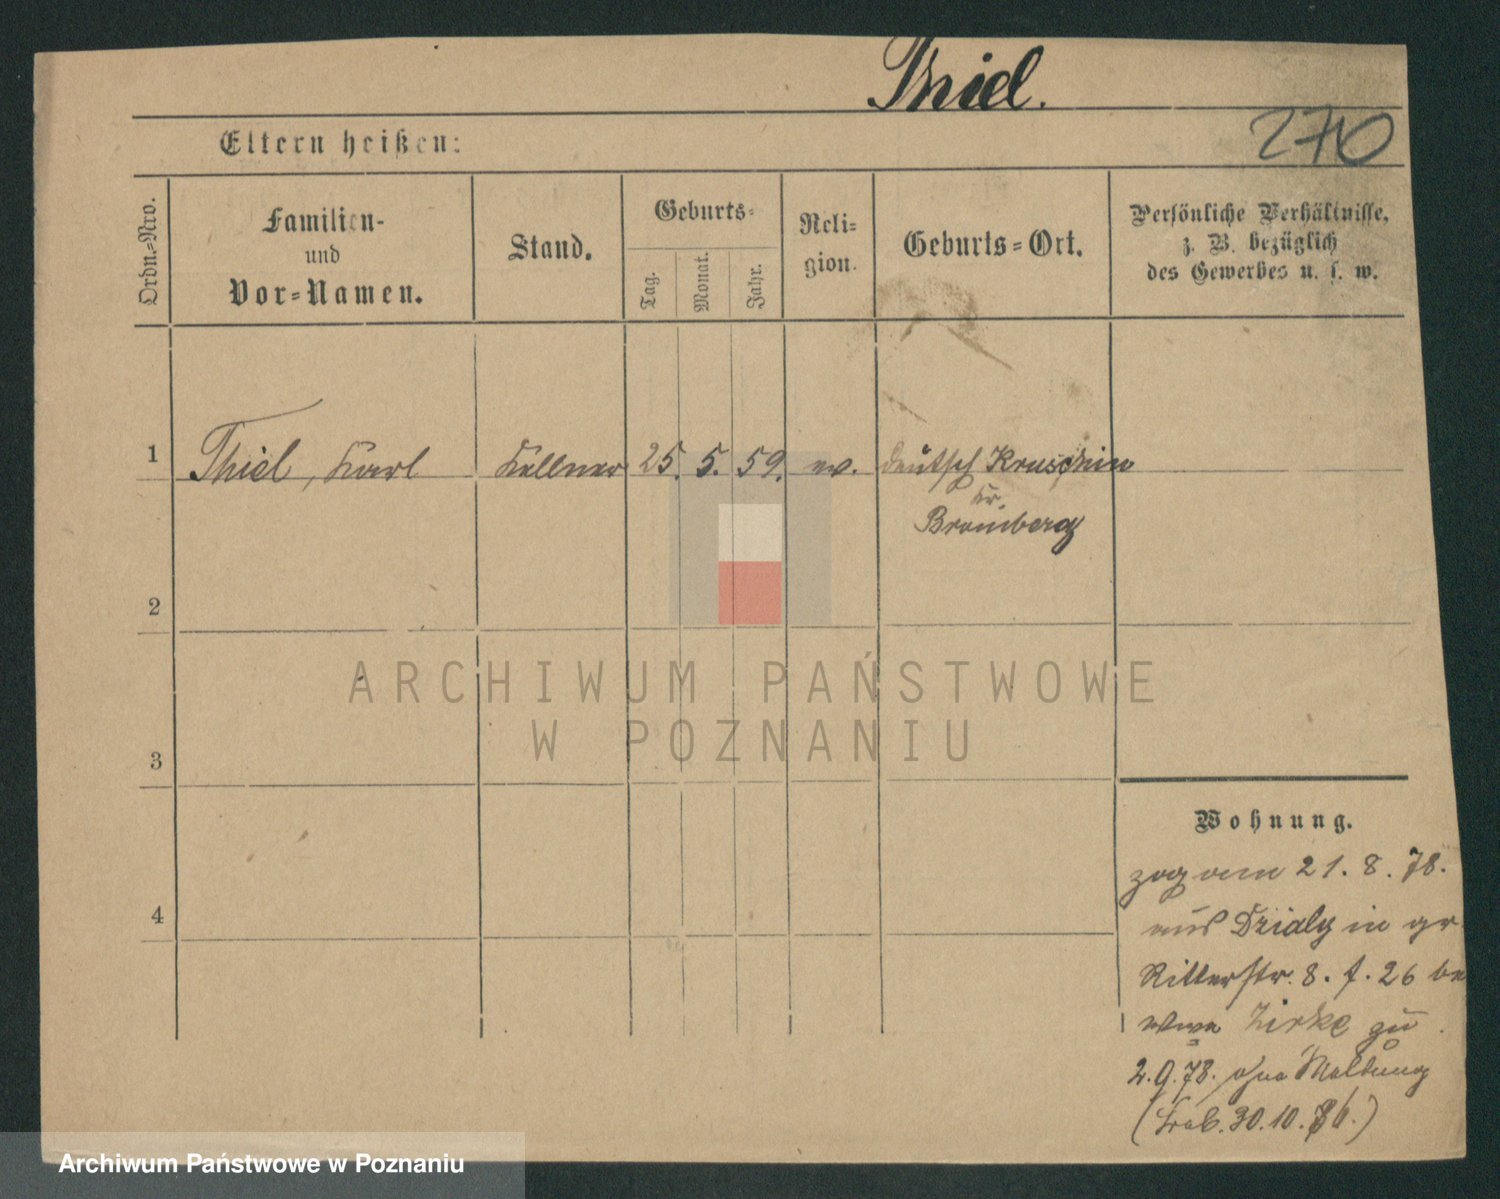 Thiel.
270
Eltern heißen:
Ordn.-Nro.
Familien-
und
Vor-Namen.
Stand.
Geburts-
Tag.
Monat.
Jahr.
Reli-
gion.
Geburts-Ort.
Persönliche Verhältnisse,
z. B. bezüglich
des Gewerbes u. s. w.
1 Thiel, Karl Kellner 25. 5. 59. ev. deutsch Kruschin
Kr.
Bromberg
2
3
4
ARCHIWUM PAŃSTWOWE
W POZNANIU
Wohnung.
zog am 21. 8. 78.
aus Dzialy in gr
Ritterstr. 8. f. 26 be
Wwe Zirke zu
2. 9. 78. ohne Meldung
30. 10.
Archiwum Państwowe w Poznaniu